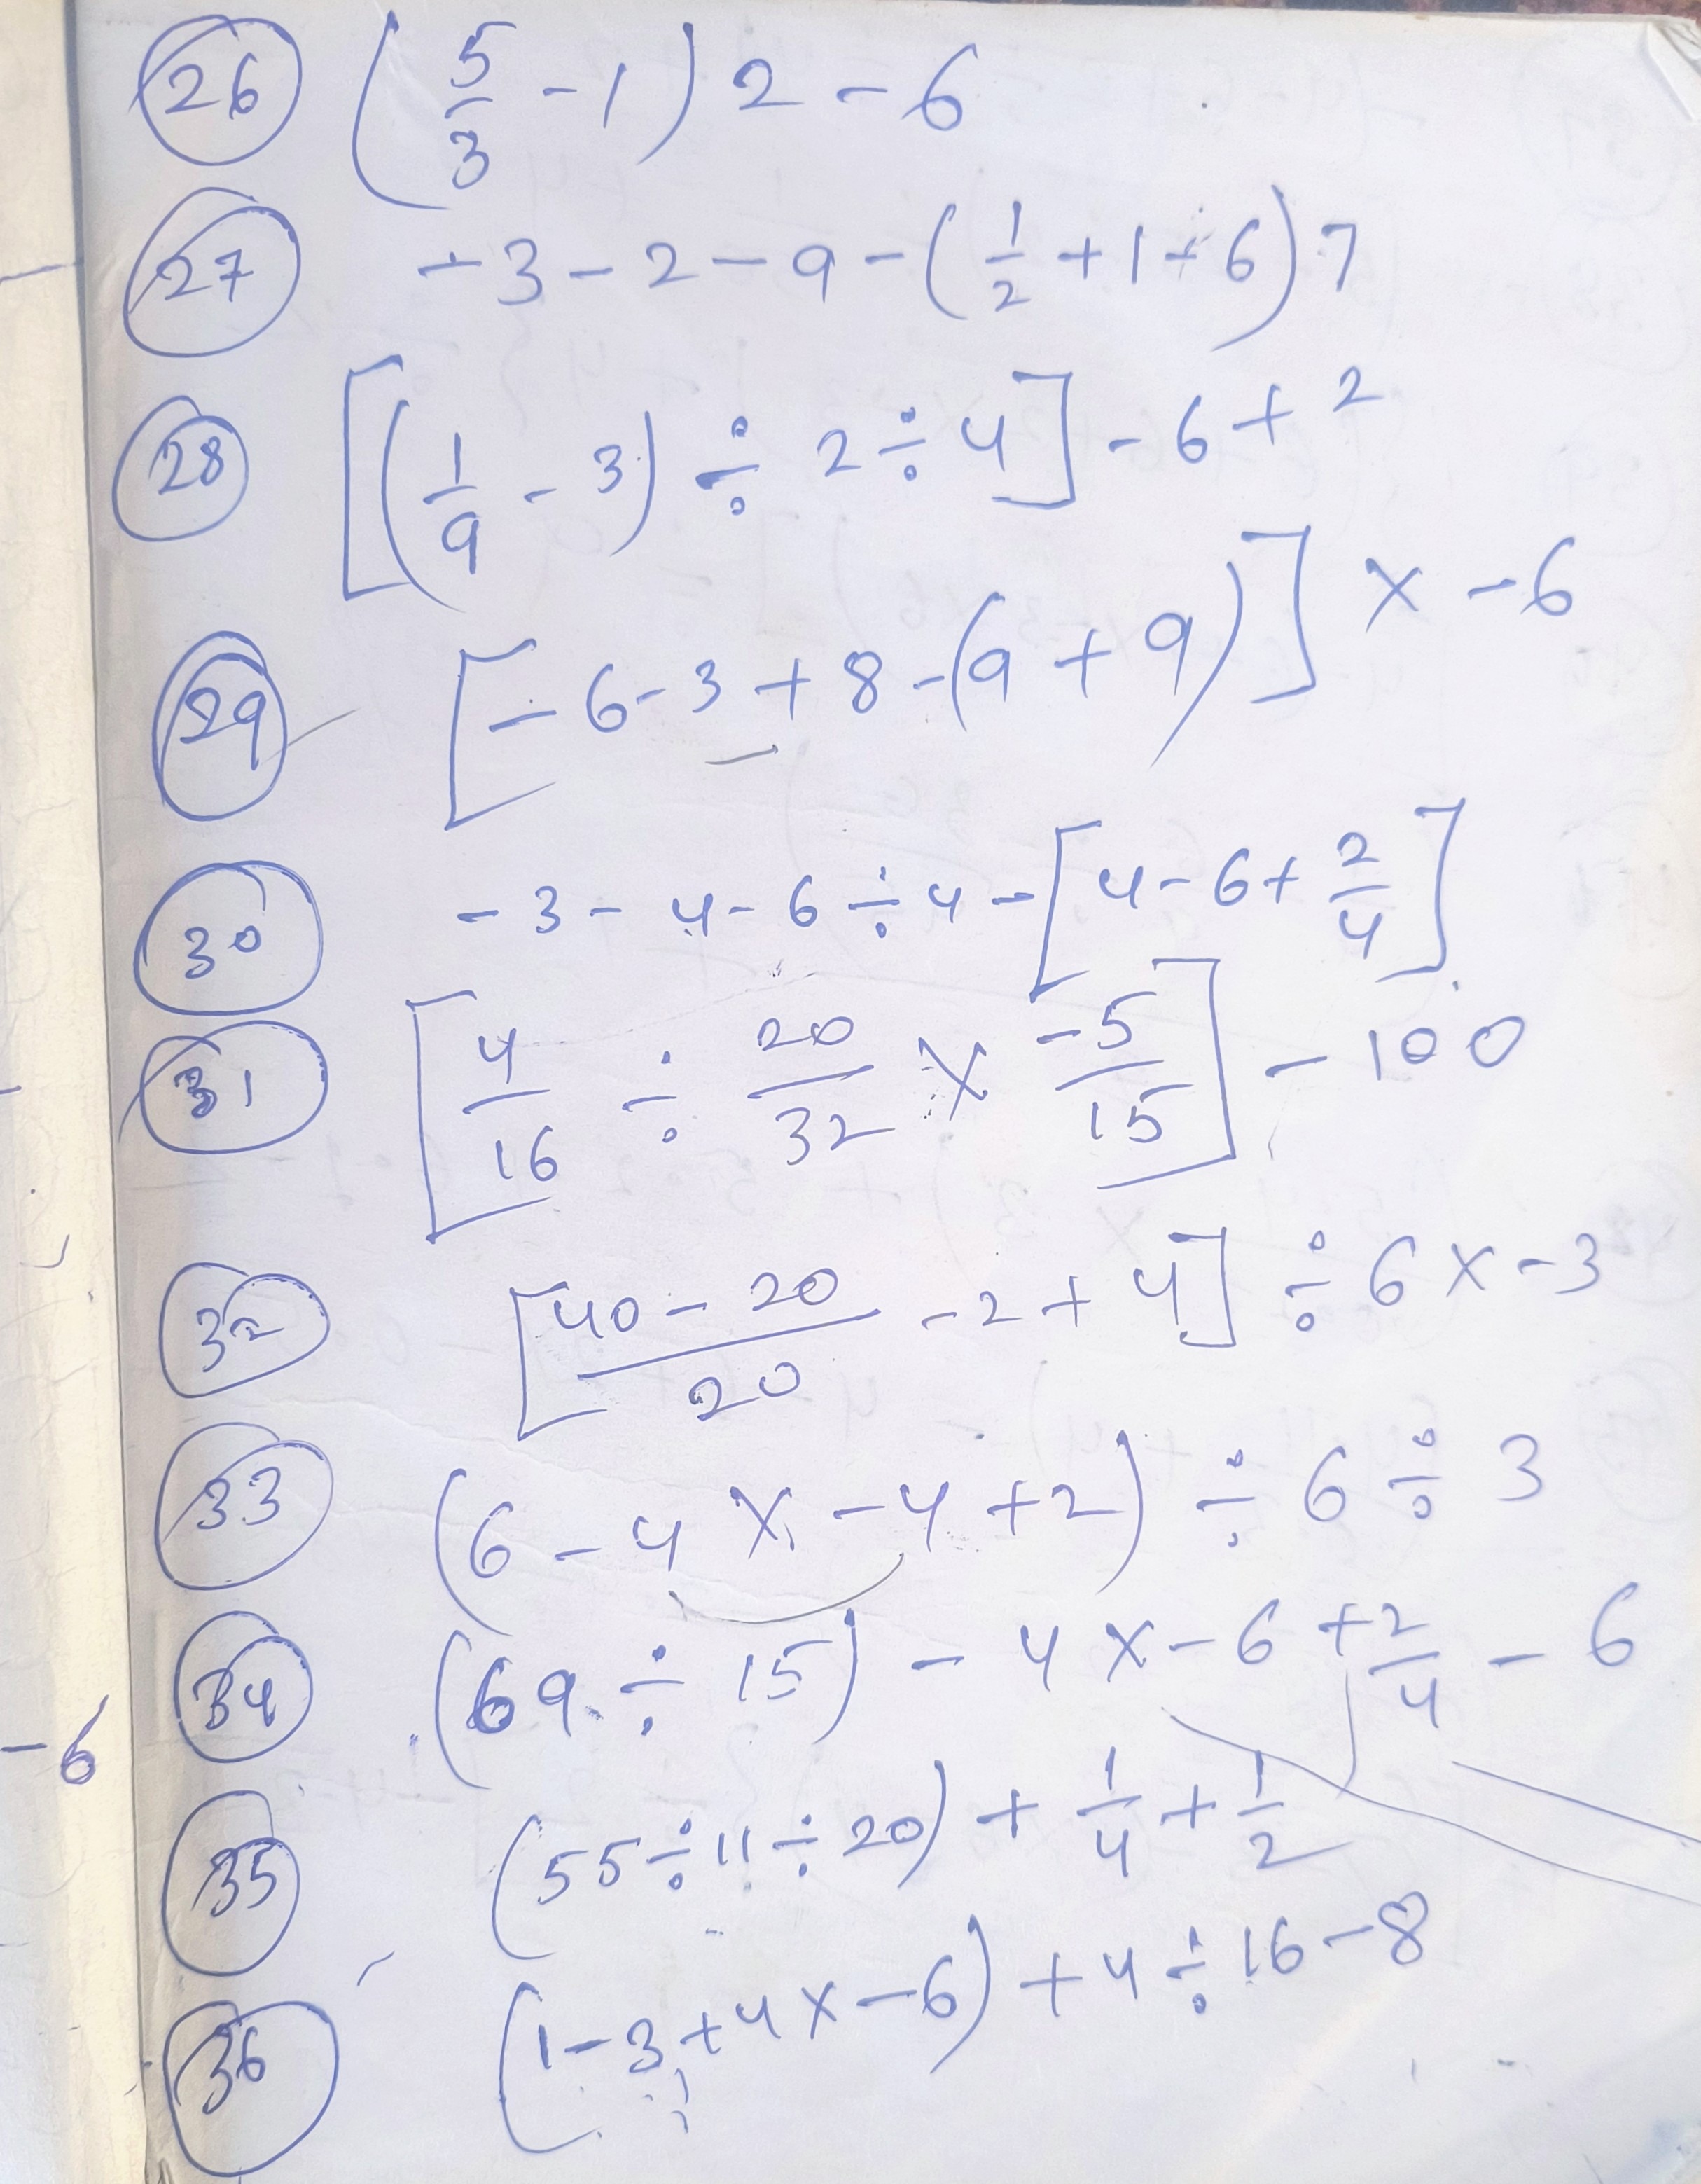 26 (5/3 - 1) 2 - 6
27 - 3 - 2 - 9 - (1/2 + 1 + 6) 7
28 [(1/9 - 3) ÷ 2 ÷ 4] - 6 + 2
29 [- 6 - 3 + 8 - (9 + 9)] × - 6
30 - 3 - 4 - 6 ÷ 4 - [4 - 6 + 2/4]
31 [4/16 ÷ 20/32 × -5/15] - 100
32 [40 - 20/20 - 2 + 4] ÷ 6 × - 3
33 (6 - 4 × - 4 + 2) ÷ 6 ÷ 3
34 (69 ÷ 15) - 4 × - 6 + 2/4 - 6
- 6
35 (55 ÷ 11 ÷ 20) + 1/4 + 1/2
36 (1 - 3 + 4 × - 6) + 4 ÷ 16 - 8